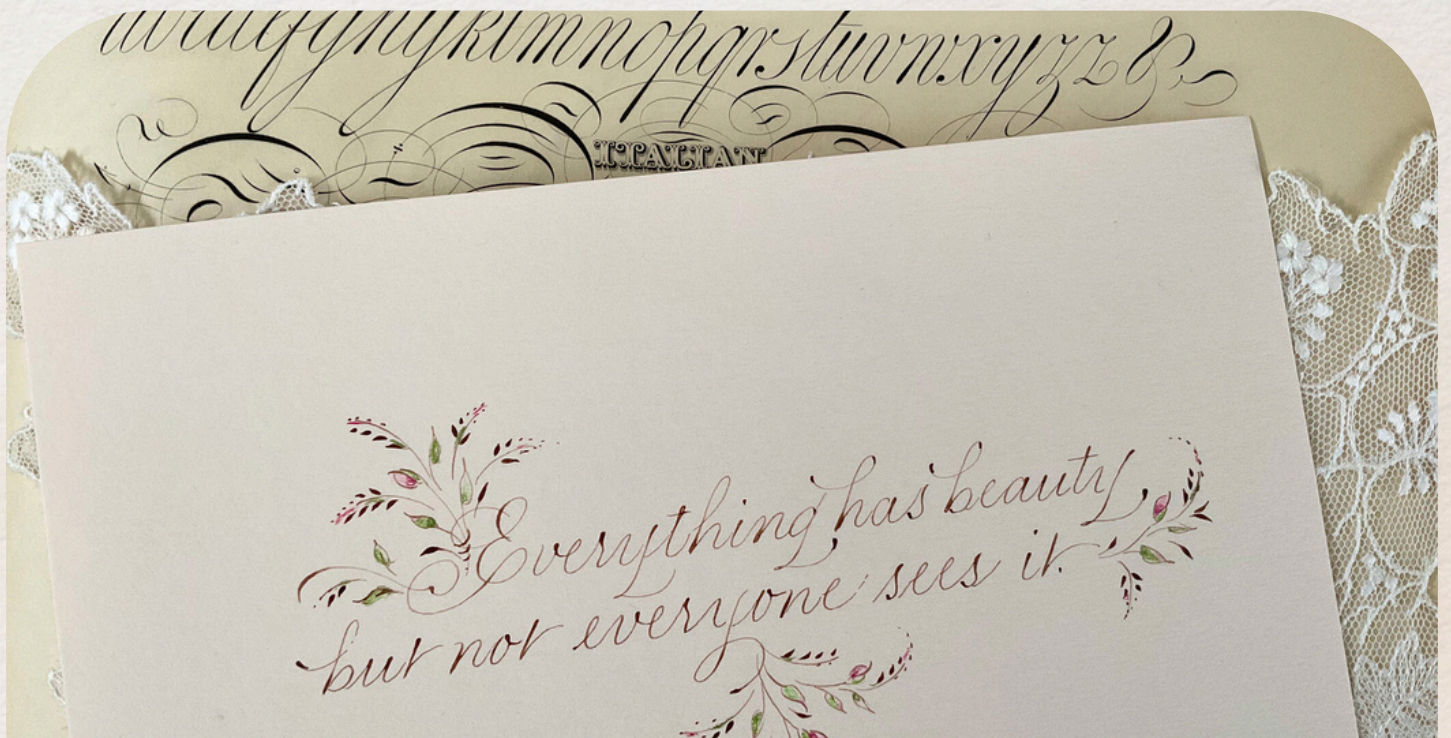 klmnopqrstuvwxyzz &
ITALIAN
Everything has beauty,
but not everyone sees it.